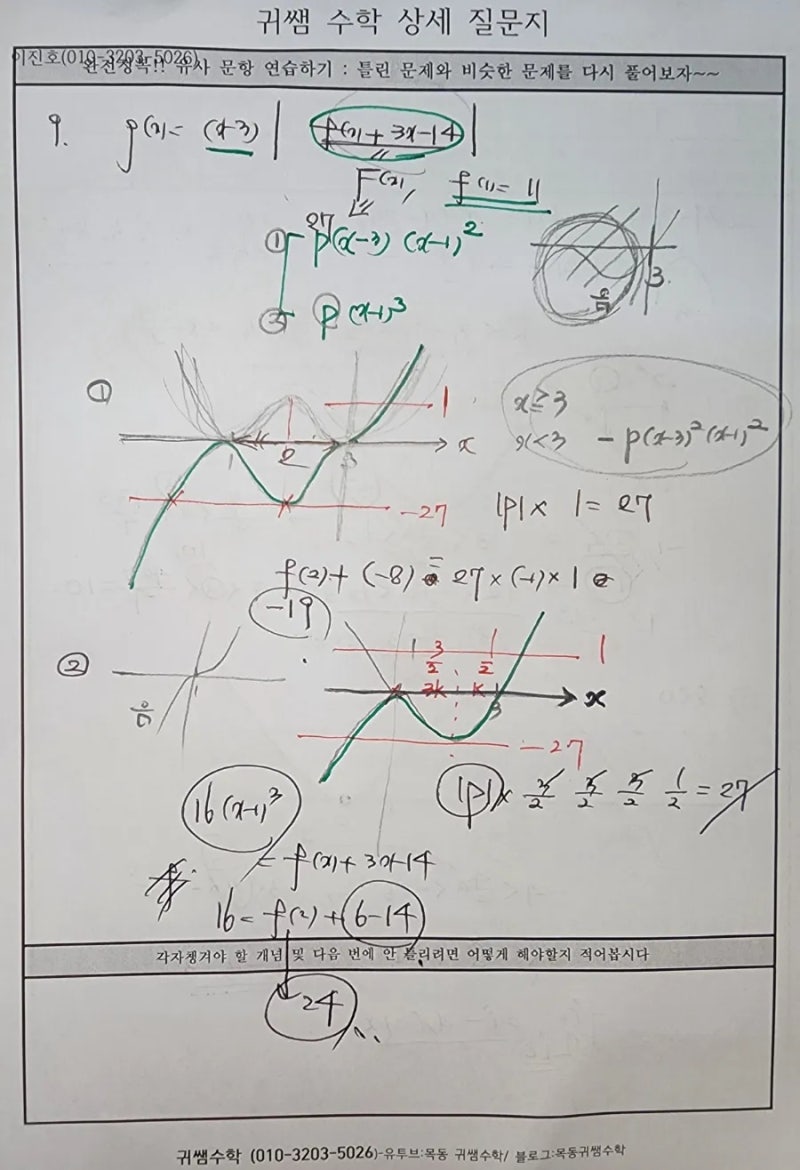 귀쌤 수학 상세 질문지
이진호(010-3203-5026)
완전정복!! 유사 문항 연습하기 : 틀린 문제와 비슷한 문제를 다시 풀어보자~~
9. g(x) = (x-3) | f(x) + 3x-14 |
F(x), f(1) = 11
27
① p(x-3) (x-1)²
② p (x-1)³
3
음
①
1
x≥3
x<3 - p(x-3)²(x-1)²
1 2 3 x
-27
|p| × 1 = 27
f(2) + (-8) = 27 × (-1) × 1
-19
②
1
음
1 3/2 1/2 1
3k k x
3
-27
|p| × 3/2 3/2 3/2 1/2 = 27
16(x-1)³
= f(x) + 3x-14
16 = f(2) + 6-14
각자챙겨야 할 개념 및 다음 번에 안 틀리려면 어떻게 해야할지 적어봅시다
24
귀쌤수학 (010-3203-5026)-유투브:목동 귀쌤수학/ 블로그:목동귀쌤수학